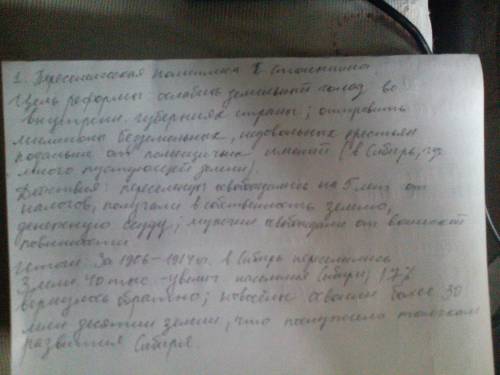 1. Переселенческая политика П. Столыпина
Цель реформы ослабить земельный голод во
внутренних губерниях страны; отправить
миллионы безземельных, недовольных крестьян
подальше от помещичьих имений (в Сибирь, где
много пустующей земли).
Действия: переселенцы освобождались на 5 лет от
налогов, получали в собственность землю,
денежную ссуду; мужчин освобождали от воинской
повинности.
Итоги За 1906-1914 гг. в Сибирь переселились
3 млн. 40 тыс. - увелич населения Сибири; 17%
вернулось обратно; новосёлы освоили более 30
млн десятин земли, что послужило толчком
развития Сибири.